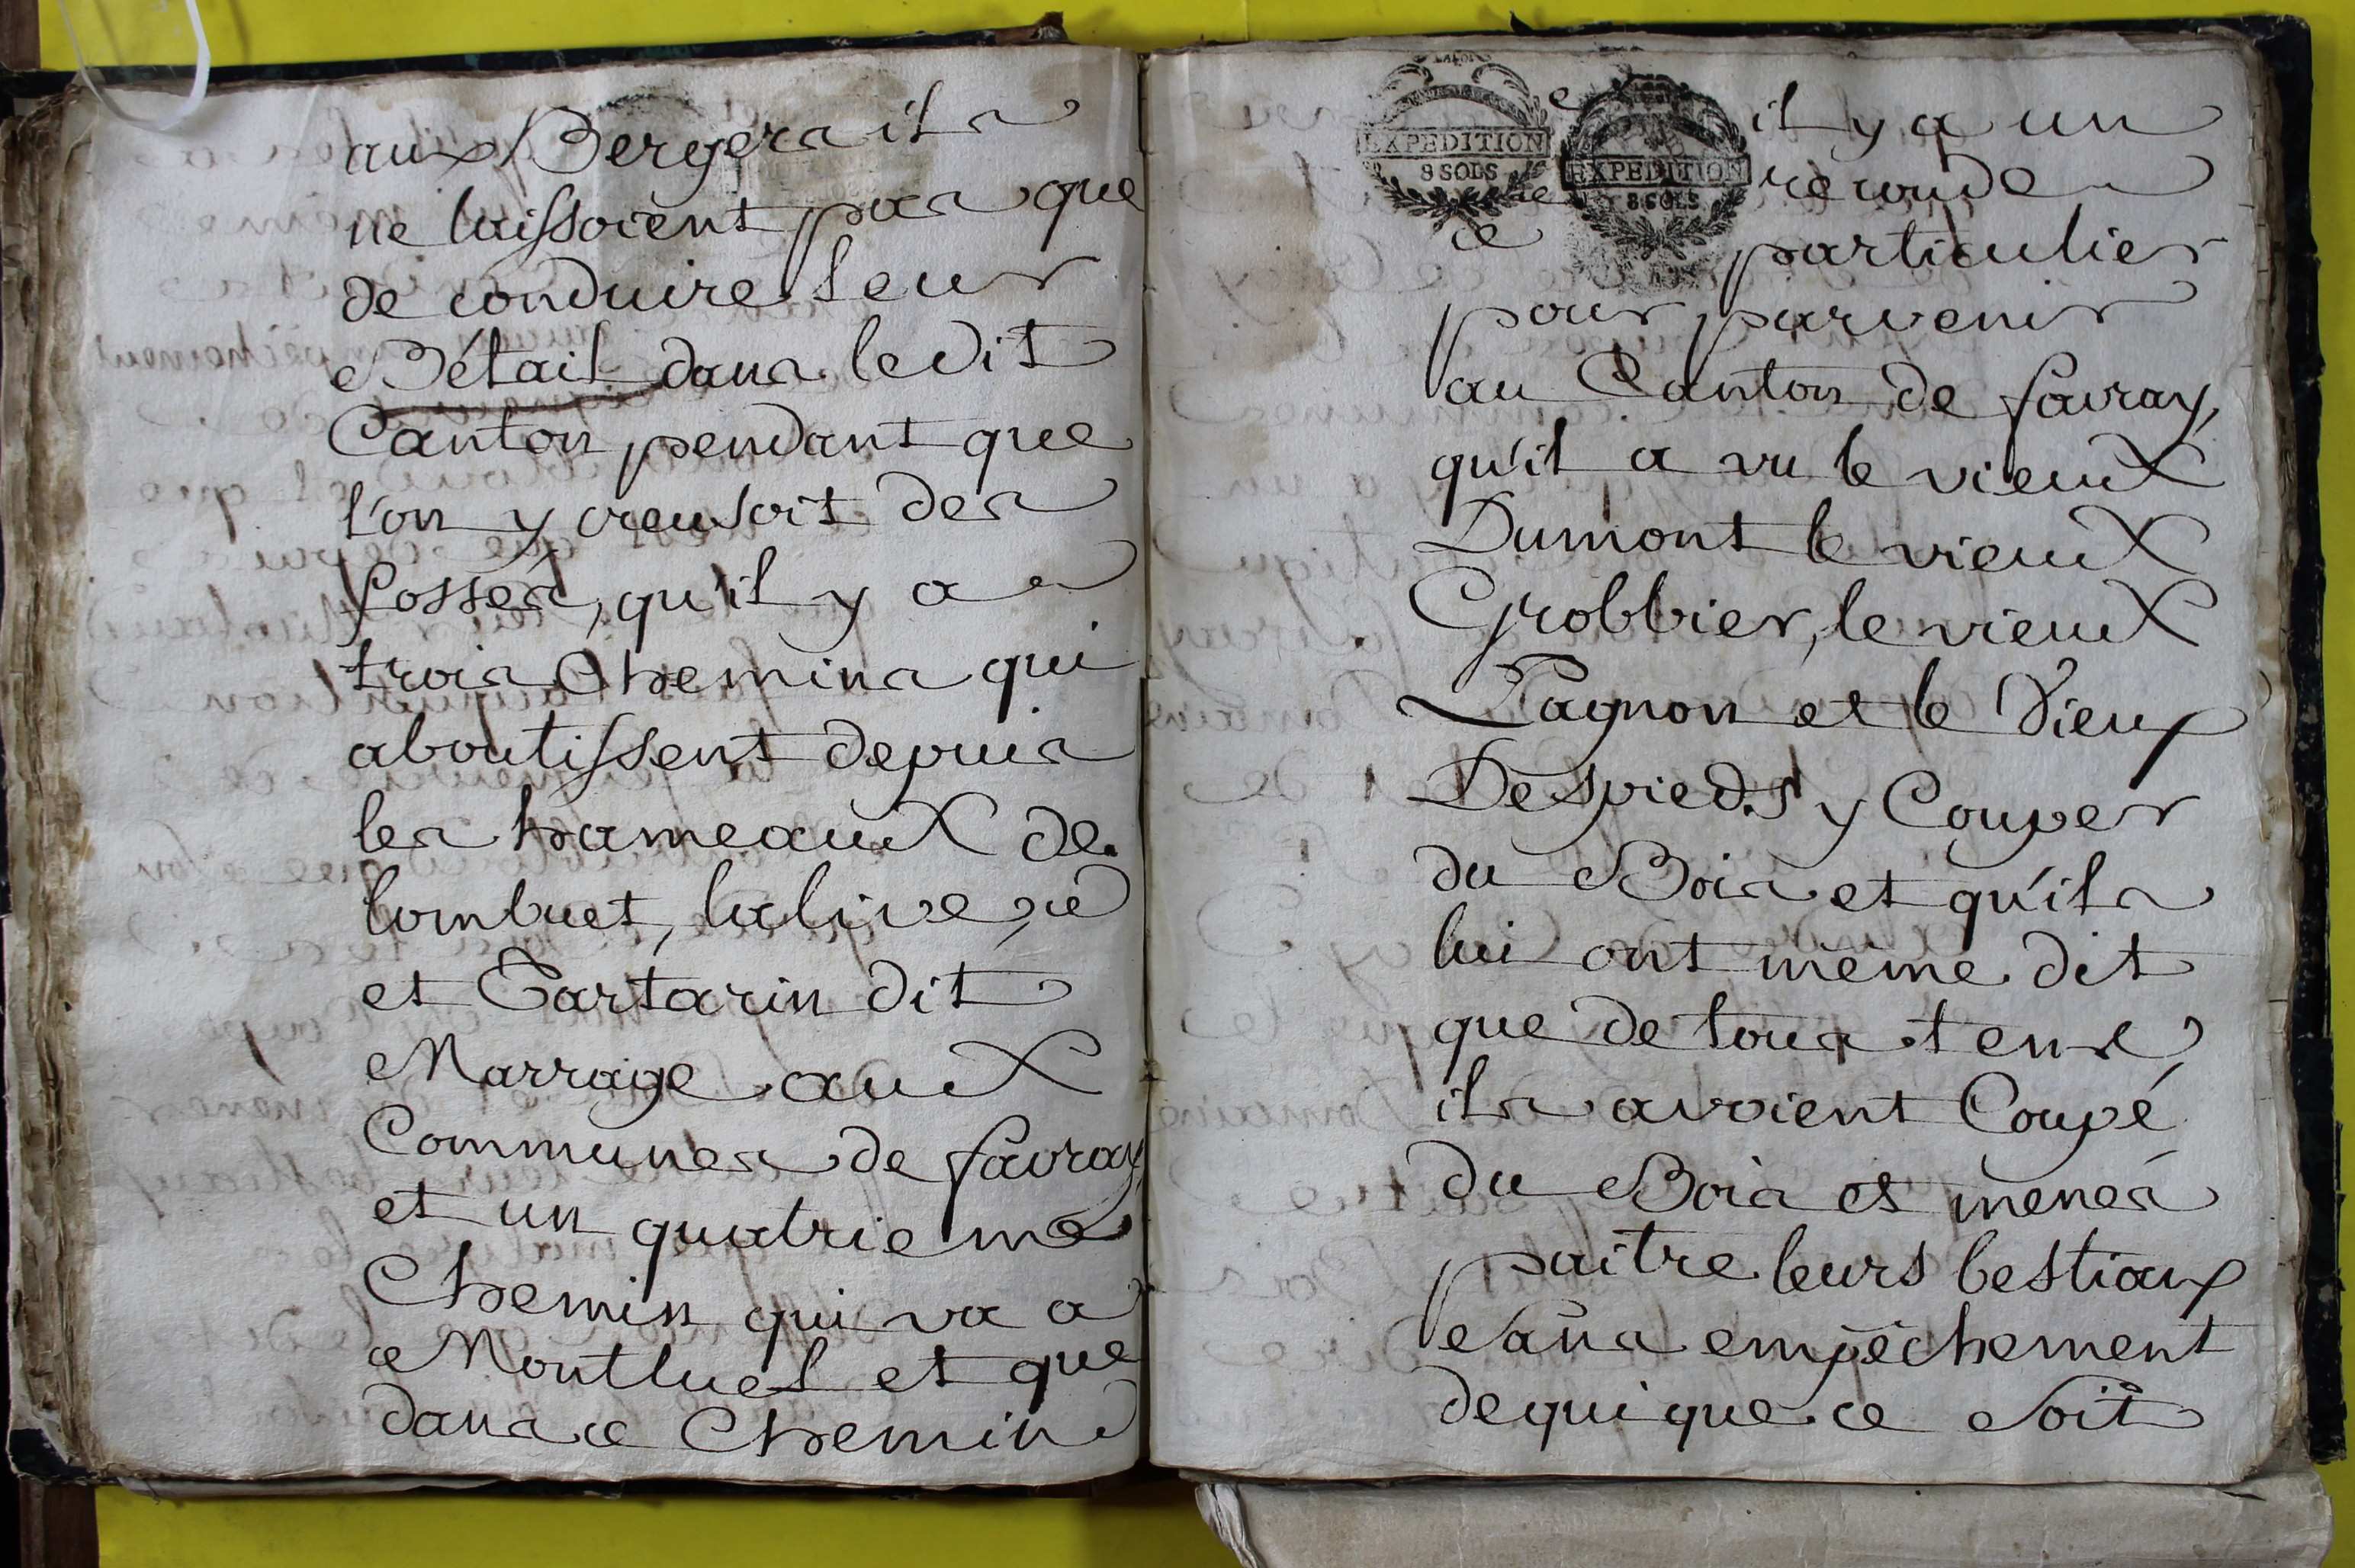 aux Bergers ils
ne laissoient pas que
de conduire leur
Bétail dans ledit
Canton pendant que
l'on y creusoit des
fossés, qu'il y a
trois Chemins qui
aboutissent depuis
les hameaux de
et Tartarin dit
Marrage aux
Communes de favray,
et un quatrieme
Chemin qui va a
Montluel et que
dans ce Chemin
EXPEDITION
8 SOLS
EXPEDITION
8 SOLS
il y a un
ce particulier
pour parvenir
au Canton de favray,
qu'il a vu le vieux
Dumont le vieux
Grobbier, le vieux
Pagnon et le Vieux
Despieds y Couper
du Bois et qu'ils
lui ont même dit
que de tous tems
ils avoient Coupé
du Bois et menés
paitre leurs bestiaux
sans empêchement
de qui que ce soit